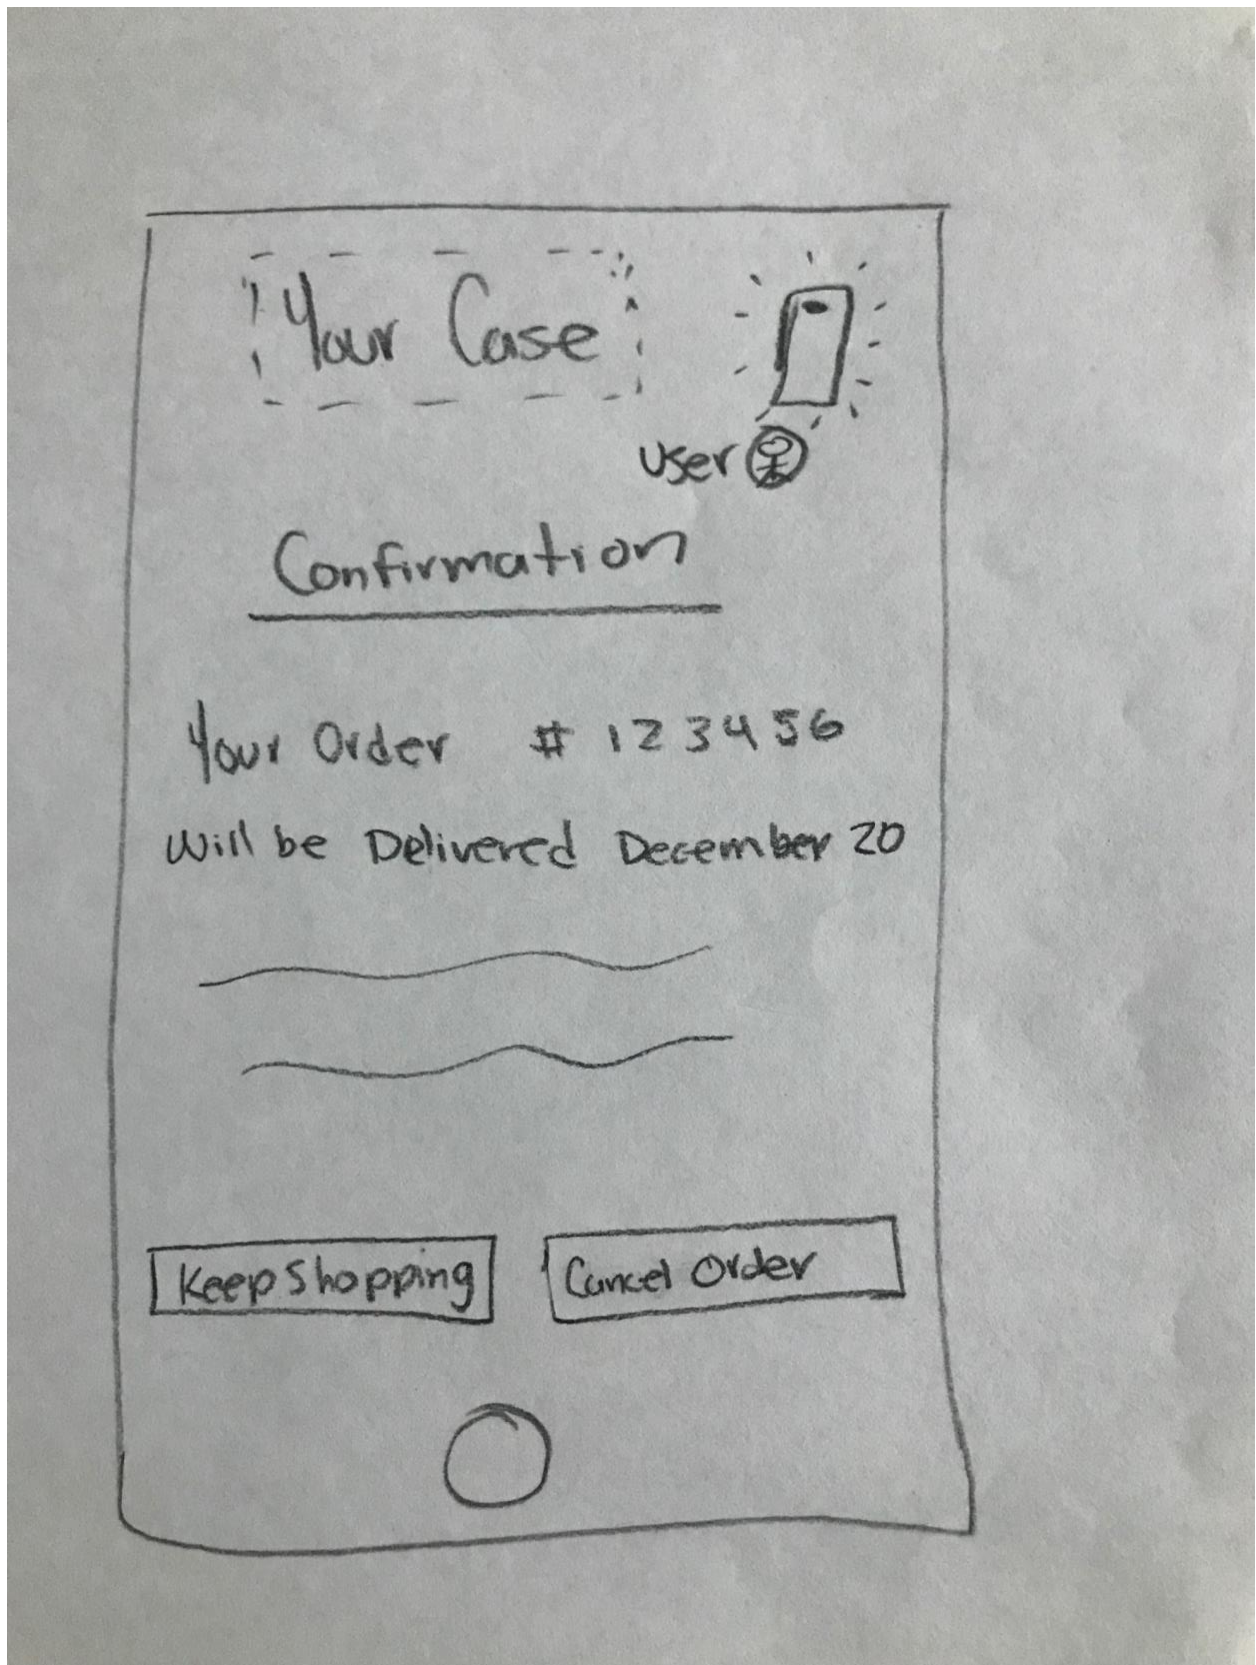 Your Case
User
Confirmation
Your Order # 123456
Will be Delivered December 20
Keep Shopping
Cancel Order